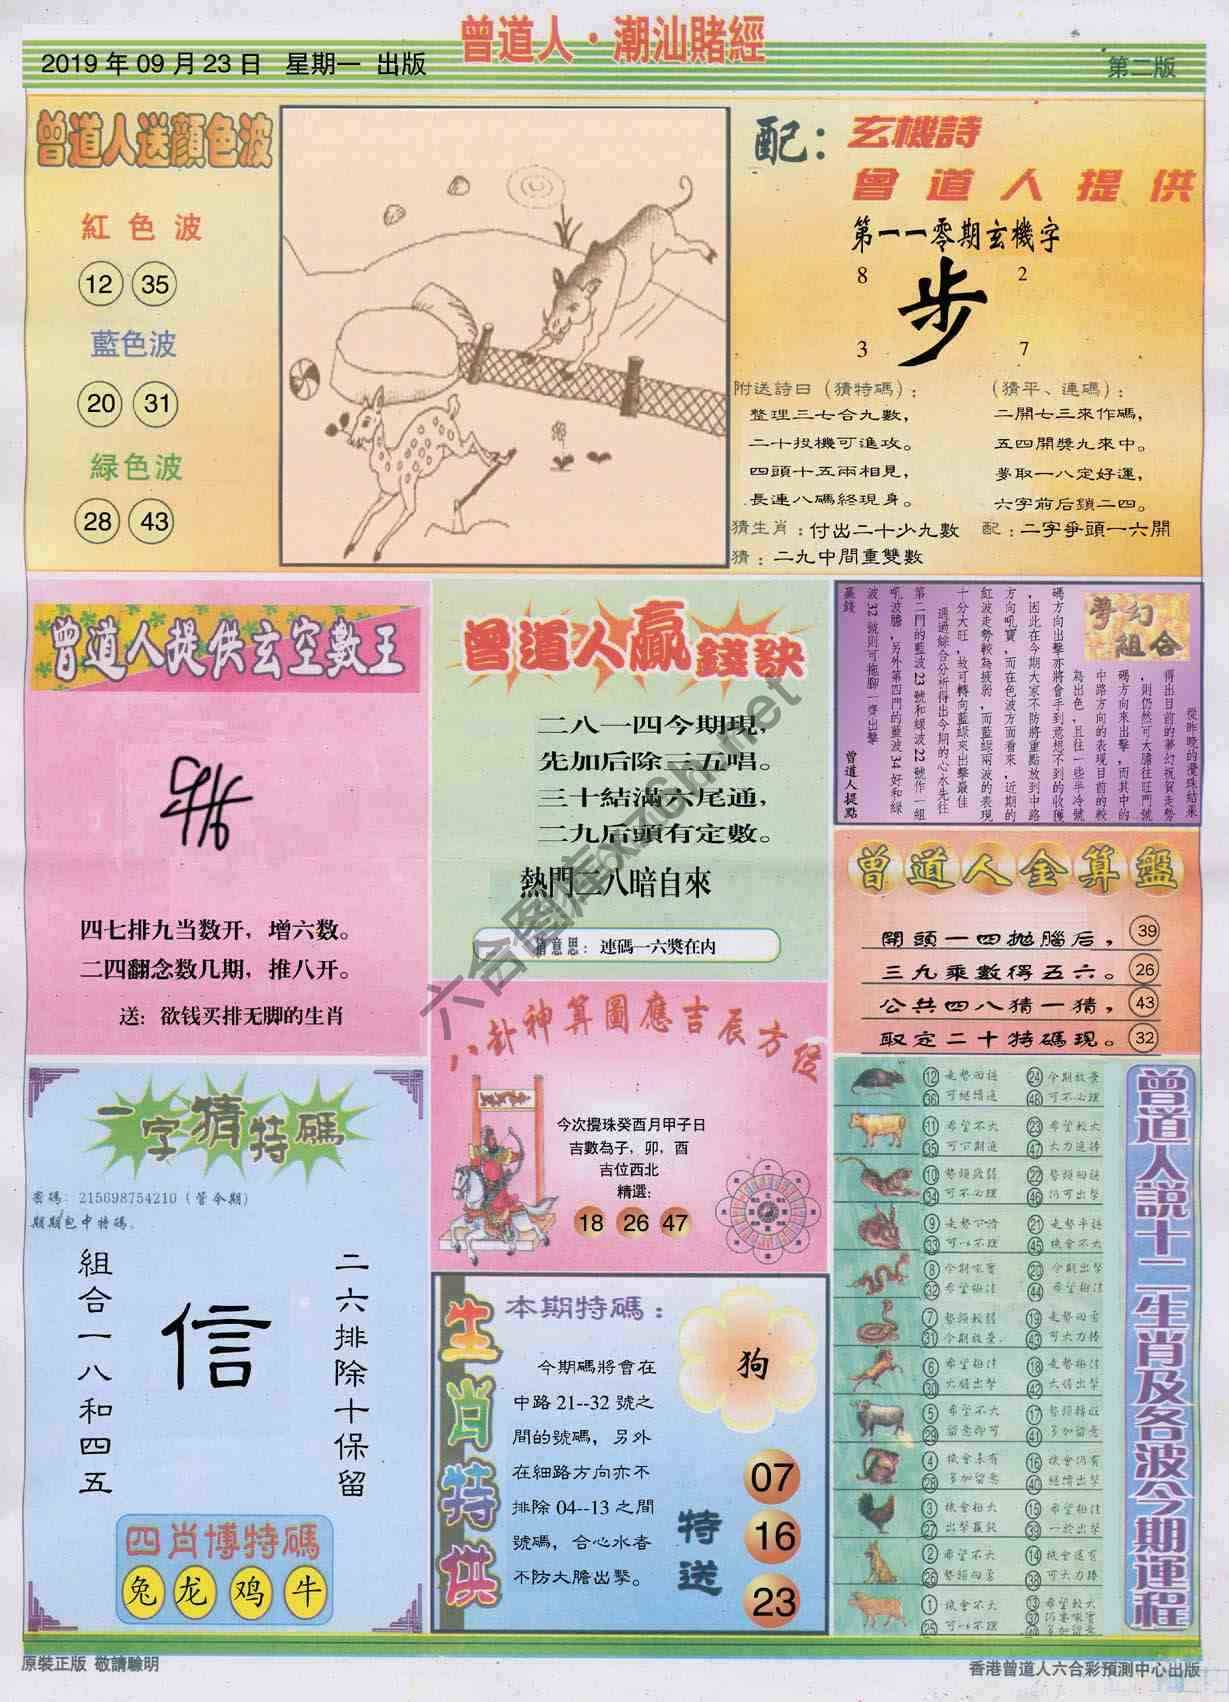 曾道人·潮汕賭經
2019年09月23日 星期一 出版
第二版
曾道人送顏色波
紅色波
12 35
藍色波
20 31
緑色波
28 43
配：
玄機詩
曾道人提供
第一一零期玄機字
8 2
步
3 7
附送詩曰（猜特碼）：
整理三七合九數，
二十投機可進攻。
四頭十五兩相見，
長連八碼終現身。
（猜平、連碼）：
二開七三來作碼，
五四開獎九來中。
夢取一八定好運，
六字前后鎖二四。
猜生肖：付出二十少九數
配：二字爭頭一六開
猜：二九中間重雙數
曾道人提供玄空數王
四七排九当数开，增六数。
二四翻念数几期，推八开。
送：欲钱买排无脚的生肖
曾道人贏錢訣
二八一四今期現，
先加后除三五唱。
三十結滿六尾通，
二九后頭有定數。
熱門二八暗自來
猜意思：連碼一六獎在内
夢幻組合
從昨晚的攪珠結果
得出目前的夢幻祝賀走勢
，則仍然可大膽往旺門號
碼方向來出擊，而其中的
中路方向的表現目前的較
為出色，且往一些半冷號
碼方向出擊亦將會手到意想不到的收穫
，因此在今期大家不防將重點放到中路
方向吼寶，而在色波方面看來，近期的
紅波走勢較為疲弱，而藍綠兩波的表現
十分大旺，故可轉向藍綠來出擊最佳
通過綜合分析得出今期的心水先往
第二門的藍波23號和綠波22號作一組
吼波膽，另外第四門的藍波34好和綠
波32號則可拖腳一齊出擊
贏錢
曾道人提點
曾道人金算盤
開頭一四拋腦后， 39
三九乘數得五六。 26
公共四八猜一猜， 43
取定二十特碼現。 32
八卦神算圖應吉辰方位
今次攪珠癸酉月甲子日
吉數為子，卯，酉
吉位西北
精選:
18 26 47
一字猜特碼
密碼：215698754210（管今期）
期期包中特碼。
組合一八和四五
信
二六排除十保留
四肖博特碼
兔 龙 鸡 牛
生肖特供
本期特碼：
今期碼將會在
中路21--32號之
間的號碼，另外
在細路方向亦不
排除04--13之間
號碼，合心水者
不防大膽出擊。
狗
特送
07
16
23
曾道人説十二生肖及各波今期運程
12 走勢回穩
36 可繼續追
24 今期放棄
48 可不必理
11 希望不大
35 可下期追
23 希望較大
47 大力追捧
10 勢頭疲弱
34 可不必理
22 勢頭回穩
46 仍可出擊
9 走勢下滑
33 可以不理
21 走勢平穩
45 機會不大
8 今期味實
32 希望極佳
20 今期出擊
44 希望極佳
7 勢頭較弱
31 今期放棄
19 走勢回勇
43 可大力捧
6 希望極佳
30 大膽出擊
18 走勢極佳
42 大膽出擊
5 希望不大
29 留意即可
17 勢頭轉旺
41 多加留意
4 機會未有
28 多加留意
16 機會仍有
40 繼續出擊
3 機會極大
27 出擊贏錢
15 希望極佳
39 一於出擊
2 希望不大
26 勢頭回勇
14 機會還有
38 可大力捧
1 機會不大
25 可以不理
13 希望較大
原裝正版 敬請驗明
香港曾道人六合彩預測中心出版